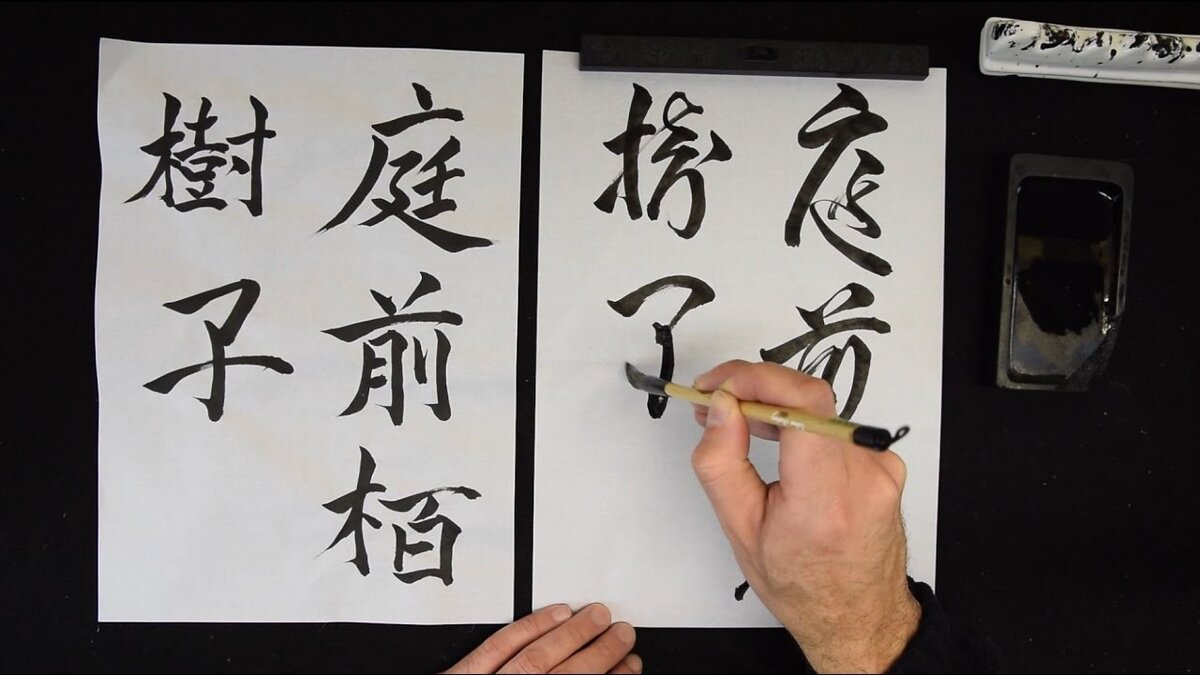 庭前栢
樹子
庭前
樹